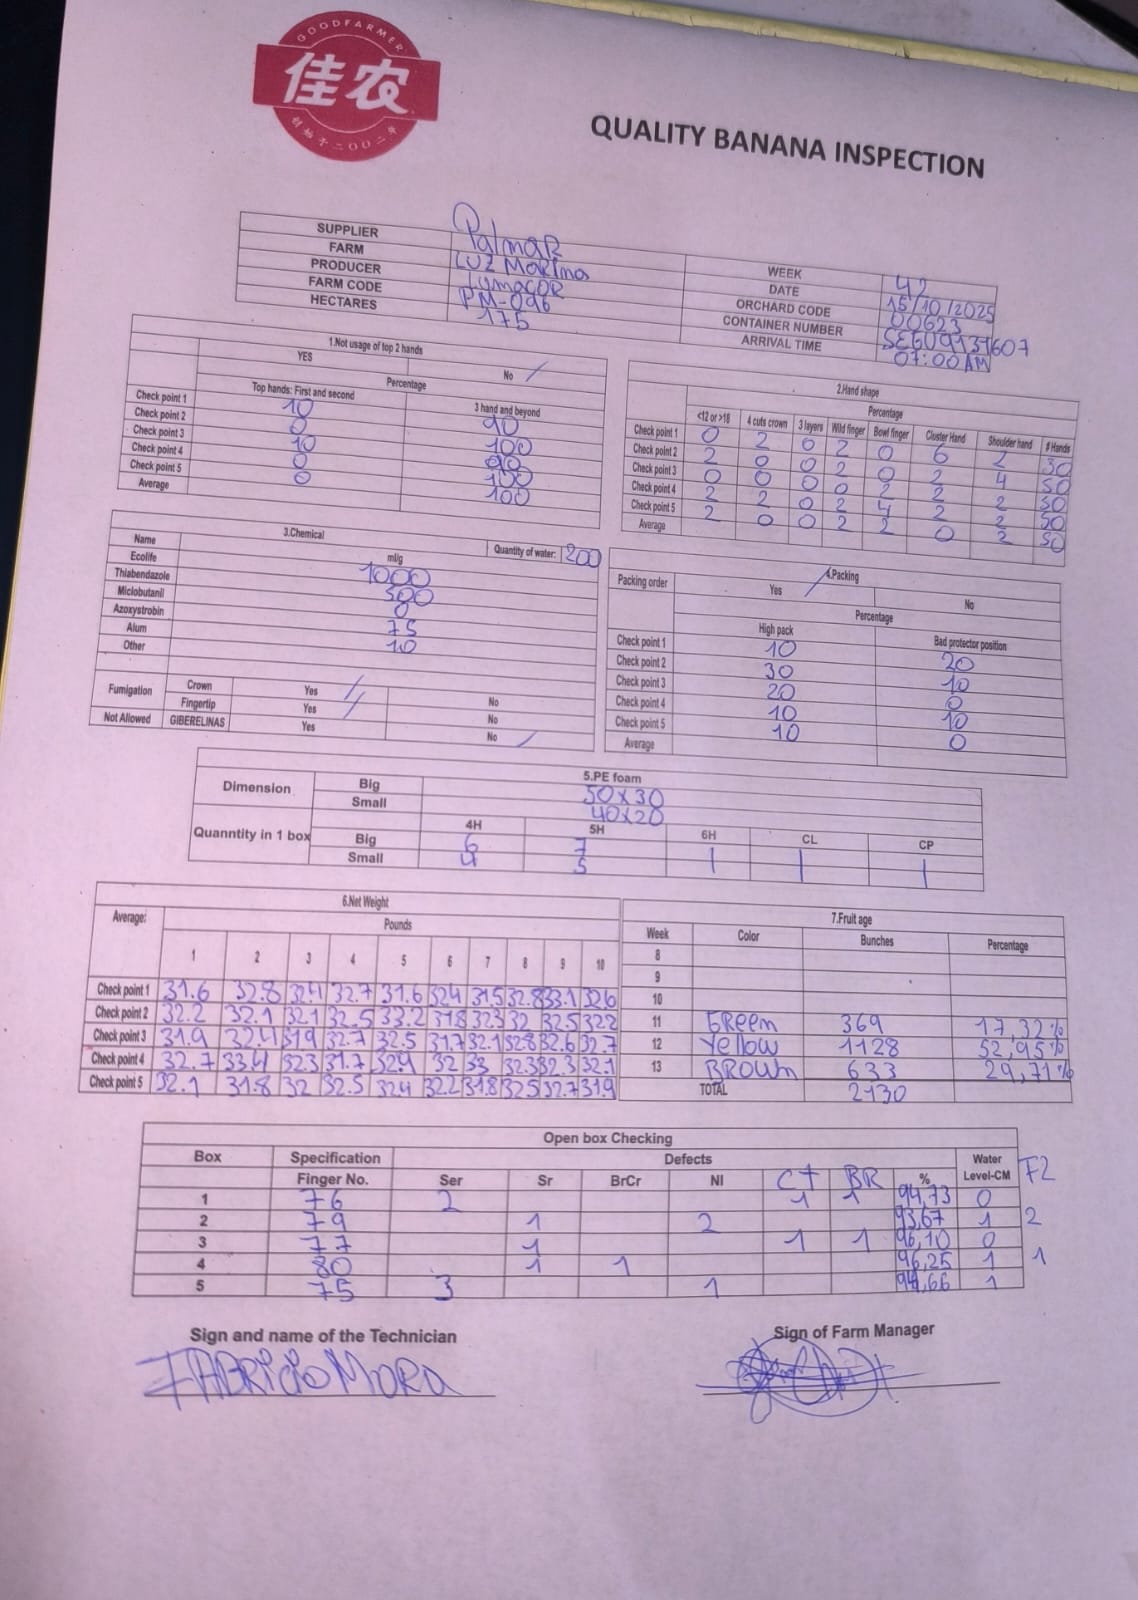 GOODFARMER
佳农
创始于二〇〇二年
QUALITY BANANA INSPECTION
SUPPLIER Palmar WEEK 42
FARM LUZ Marina DATE 15/10/2025
PRODUCER ORCHARD CODE 00623
FARM CODE PM-096 CONTAINER NUMBER SEGU9131607
HECTARES 175 ARRIVAL TIME 07:00AM
1.Not usage of top 2 hands
YES No /
Percentage
Top hands: First and second 3 hand and beyond
Check point 1 10 90
Check point 2 0 100
Check point 3 10 90
Check point 4 0 100
Check point 5 0 100
Average
2.Hand shape
Percentage
<12 or >18 4 cuts crown 3 layers Wild finger Bowl finger Cluster Hand Shoulder hand # Hands
Check point 1 0 2 0 2 0 6 2 50
Check point 2 2 0 0 2 0 2 4 50
Check point 3 0 0 0 0 2 2 2 50
Check point 4 2 2 0 2 4 2 2 50
Check point 5 2 0 0 2 2 0 2 50
Average
3.Chemical
Name ml/g Quantity of water: 200
Ecolife 1000
Thiabendazole 500
Miclobutanil 0
Azoxystrobin 75
Alum 10
Other
Fumigation Crown Yes / No
Fingertip Yes / No
Not Allowed GIBERELINAS Yes No /
4.Packing
Packing order Yes / No
Percentage
High pack Bad protector position
Check point 1 10 20
Check point 2 30 10
Check point 3 20 0
Check point 4 10 10
Check point 5 10 0
Average
5.PE foam
Dimension Big 50x30
Small 40x20
Quanntity in 1 box 4H 5H 6H CL CP
Big 6 7 / / /
Small 4 5
6.Net Weight
Average: Pounds
1 2 3 4 5 6 7 8 9 10
Check point 1 31.6 32.8 32.4 32.7 31.6 32.4 31.5 32.8 33.1 32.6
Check point 2 32.2 32.1 32.1 32.5 33.2 31.8 32.3 32 32.5 32.2
Check point 3 31.9 32.4 31.9 32.7 32.5 31.7 32.1 32.8 32.6 32.7
Check point 4 32.7 33.4 32.3 31.7 32.9 32 33 32.3 32.3 32.1
Check point 5 32.1 31.8 32 32.5 32.4 32.2 31.8 32.5 32.7 31.9
7.Fruit age
Week Color Bunches Percentage
8
9
10
11 Green 369 17,32%
12 Yellow 1128 52,95%
13 Brown 633 29,71%
TOTAL 2130
Open box Checking
Box Specification Defects Water
Finger No. Ser Sr BrCr NI CT BR % Level-CM F2
1 76 2 1 1 94,73 0
2 79 1 2 93,67 1 2
3 77 1 1 1 96,10 0
4 80 1 1 96,25 1 1
5 75 3 1 94,66 1
Sign and name of the Technician Sign of Farm Manager
FABRICIO MORA